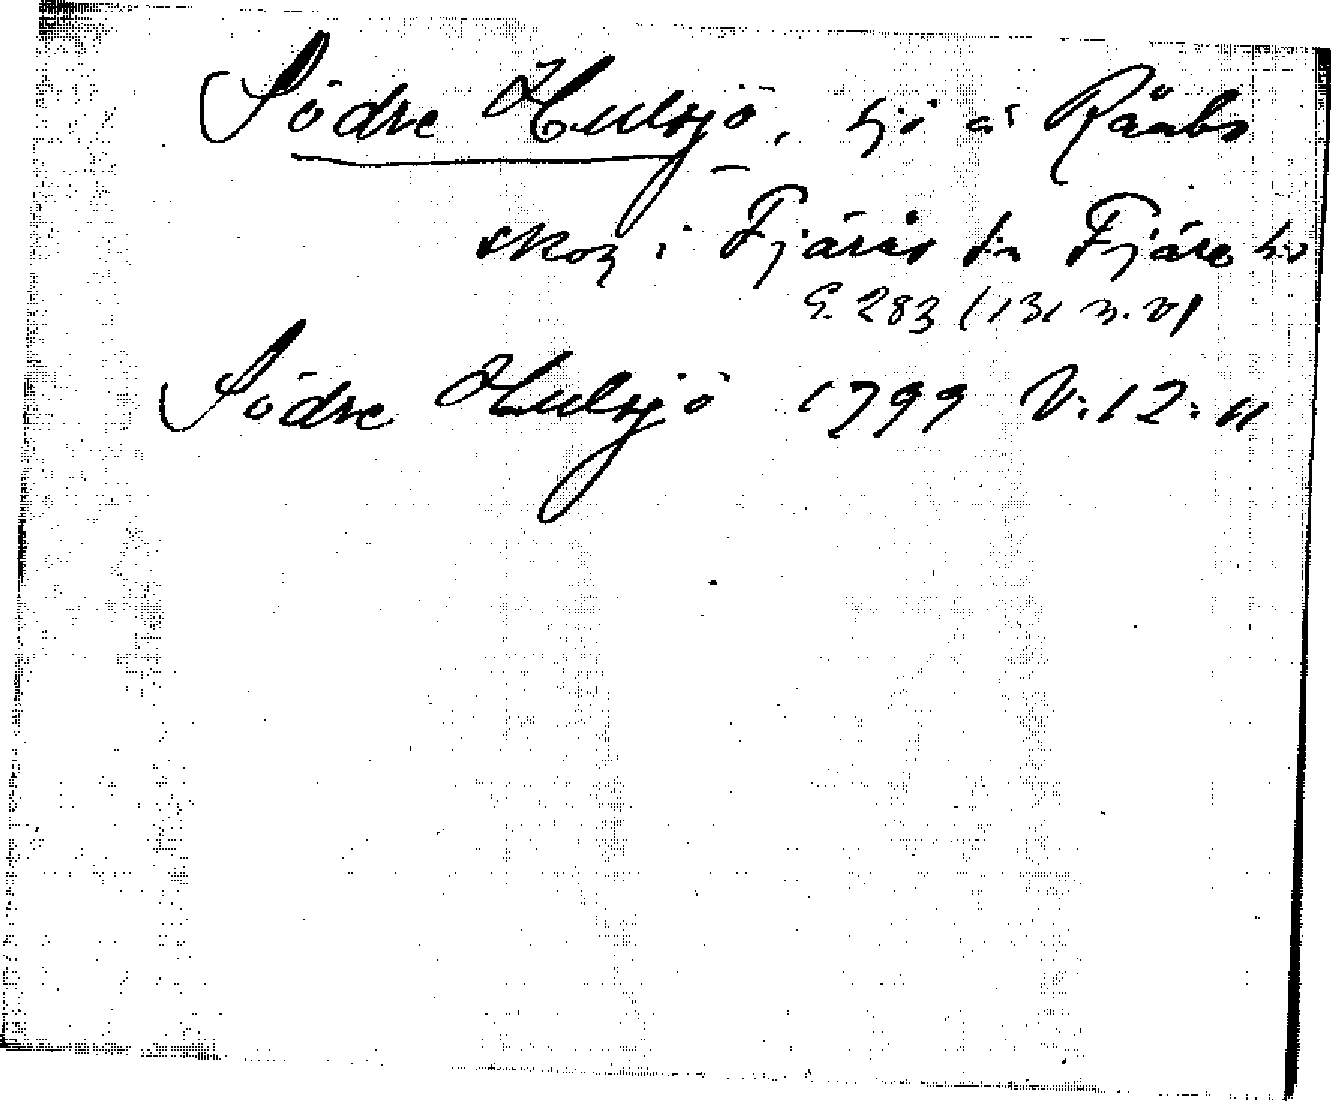 Södre Hulsjö, sjö å Råabo
skog i Fjärås sn Fjäre hd
G. 283 (131 n. v)
Södre Hulsjö 1799 V:12:11